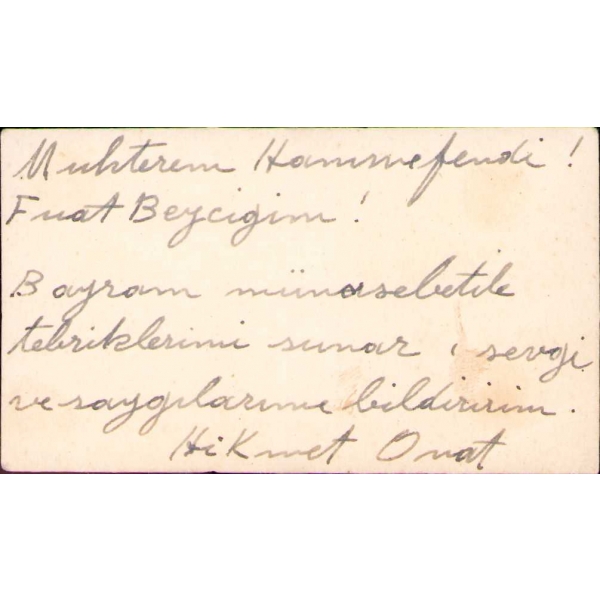 Muhterem Hanımefendi !
Fuat Beyciğim !
Bayram münasebetile
tebriklerimi sunar, sevgi
ve saygılarımı bildiririm.
Hikmet Onat